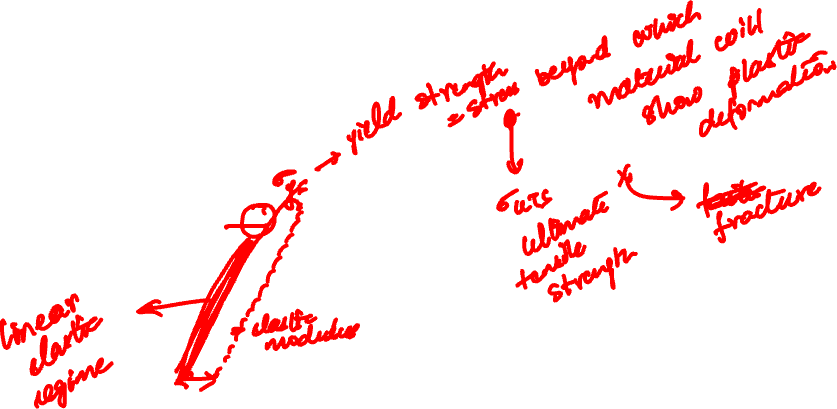 σys → yield strength
= stress beyond which
material will
show plastic
deformation
σUTS
ultimate
tensile
strength
x
fracture
linear
elastic
regime
elastic
modulus